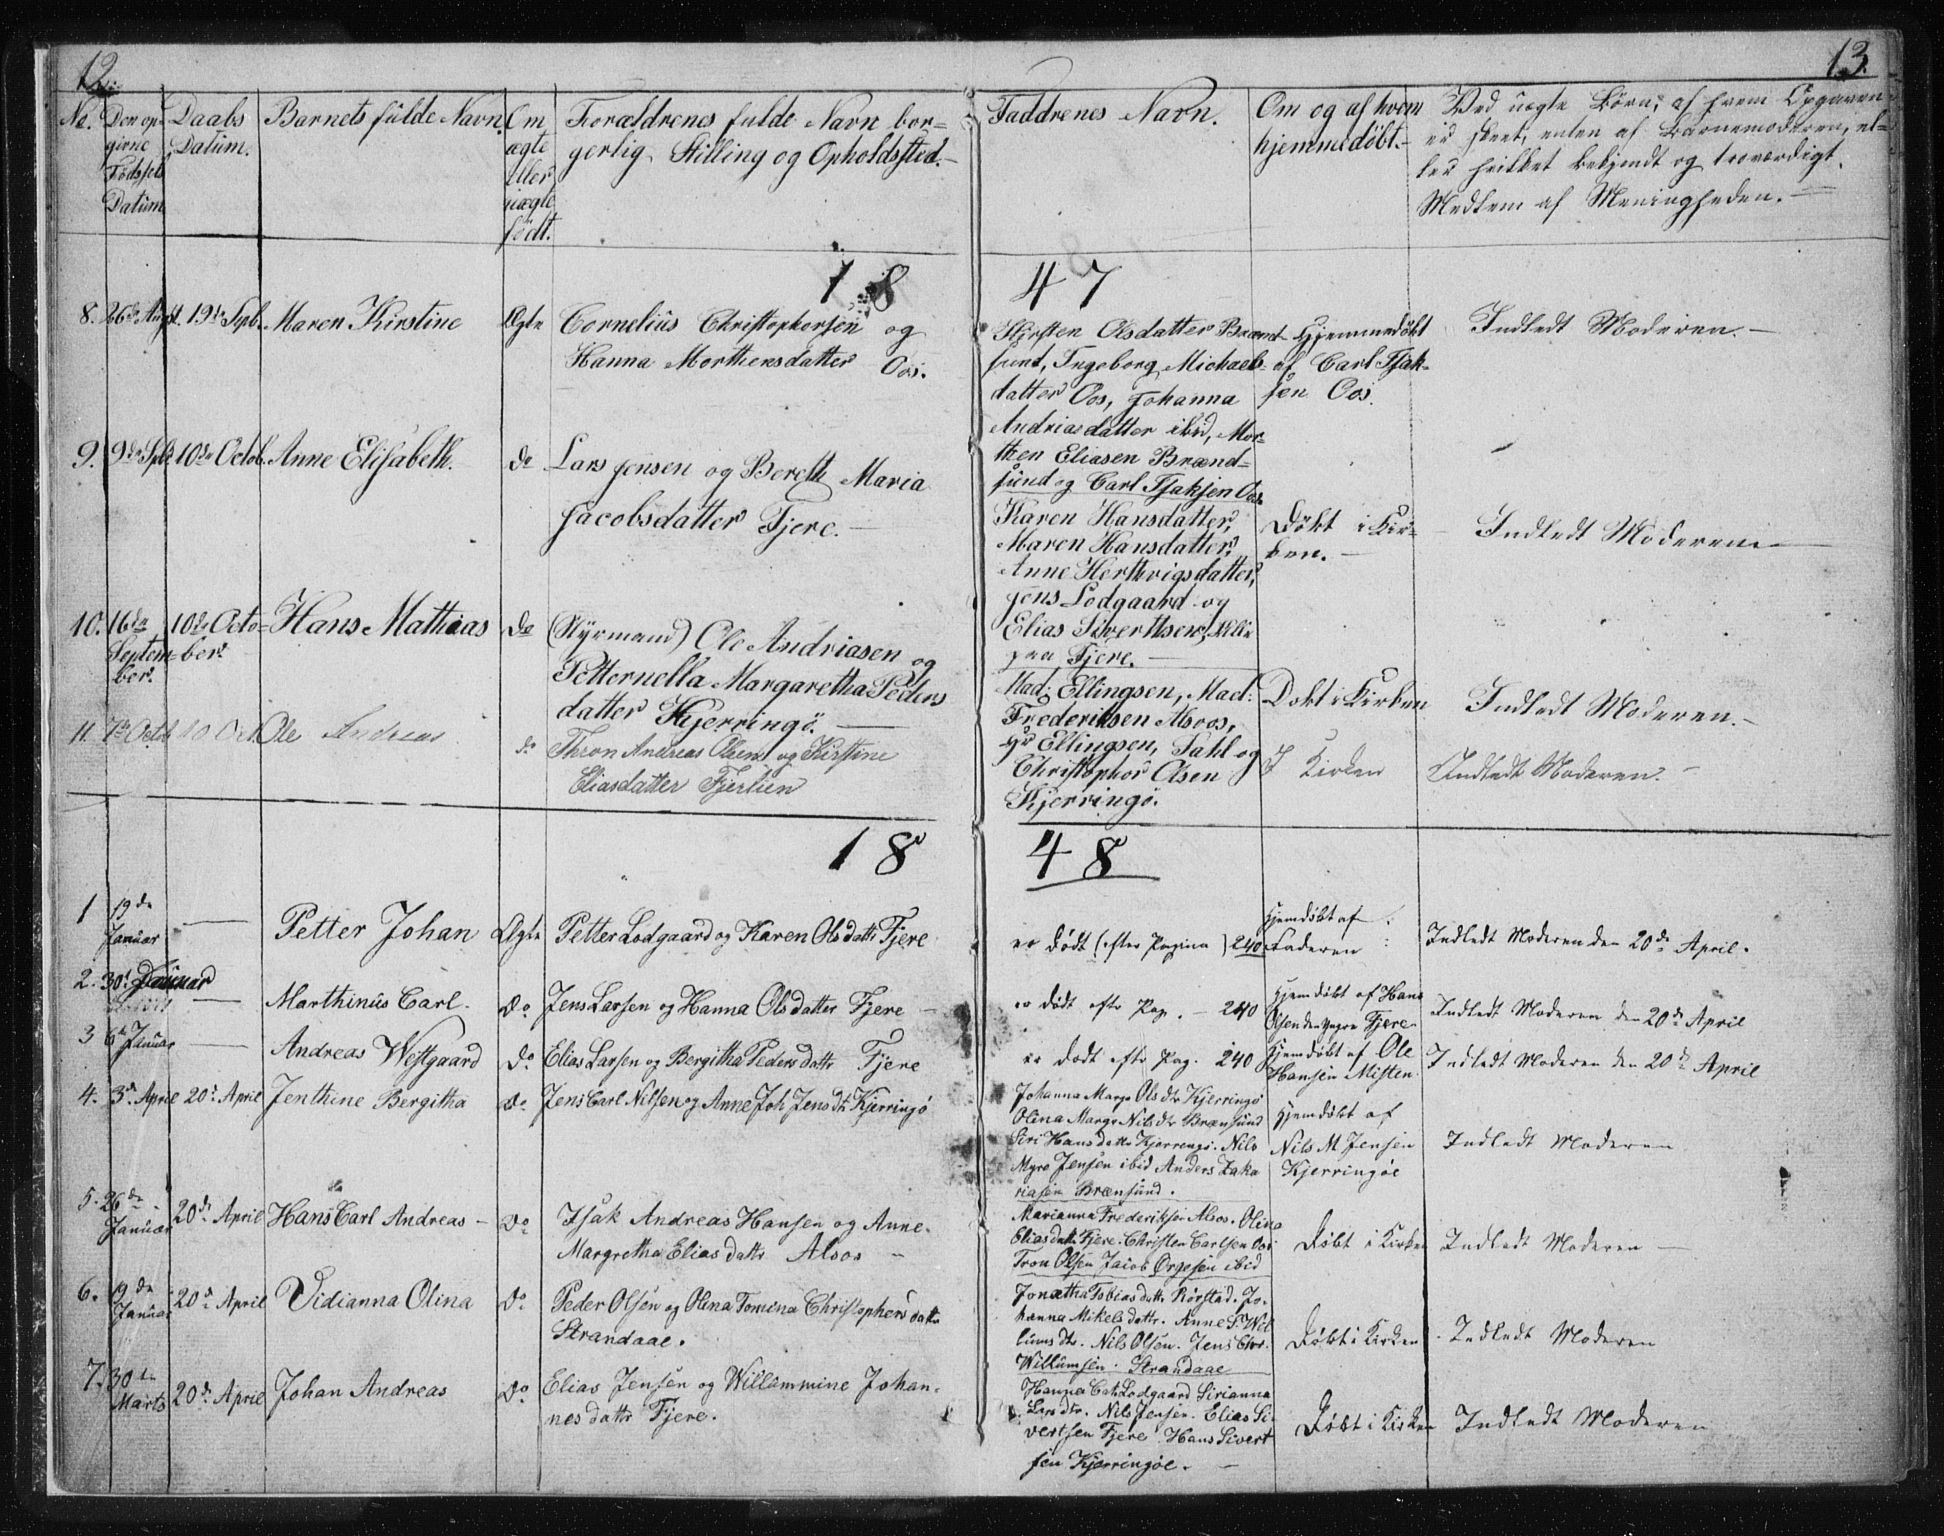 12.
13.
No. Den op- Daabs Barnets fulde Navn. Om Forældrenes fulde Navn bor-
givne Datum. ægte gerlig Stilling og Opholdsted.-
Fødsels eller
Datum uægte
født.
Faddrenes Navn. Om og af hvem
hjemmedøbt.-
Ved uægte Børn, af hvem Opgaven
er skeet, enten af Barnemoderen, el-
ler hvilket bekjendt og troværdigt
Medlem af Menigheden.-
18 47
8. 26de Augst. 19de Sepb. Maren Kirstine Ægte Cornelius Christophersen og
Hanna Morthensdatter Oos.
Kirsten Olsdatter Brænd-
sund, Ingeborg Michaels-
datter Oos, Johanna
Andriasdatter ibid, Mor-
then Eliasen Brænd-
sund og Carl Isaksen Oos
Hjemmedøbt
af Carl Isak-
sen Oos.
Indledt Moderen.-
9. 9de Sptb. 10de Octob. Anne Elisabeth. do Lars Jensen og Bereth Maria
Jacobsdatter Fjere.-
Karen Hansdatter,
Maren Hansdatter,
Anne Herthvigsdatter,
Jens Lodgaard og
Elias Siverthsen, Alle
paa Fjere.-
Døbt i Kir-
ken.-
Indledt Moderen.-
10. 16de 10de Octo- Hans Mathias do (Styrmand) Ole Andriasen og
Septem- ber. Petternella Margaretha Peders
ber. datter Kjerringø.-
Mad: Ellingsen, Mad:
Frederiksen Alsos,
Hr Ellingsen, Dahl og
Christophor Olsen
Kjerringø.
Døbt i Kirken
Indledt Moderen.-
11. 7de Octb 10 Oct Ole Andreas do Thron Andreas Olsen og Kirstine
Eliasdatter Fjerlien
I Kirken
Indledt Moderen.-
18 48
1 19de - Petter Johan Ægte Petter Lodgaard og Karen Olsdattr Fjere
Januar
er Død (efter Pagina) 240
Hjemdøbt af
Faderen
Indledt Moderen den 20de April.
2. 30t Januar - Marthinus Carl. Do. Jens Larsen og Hanna Olsdatter Fjere -
er Død eftr Pag. - 240
Hjemdøbt af Hans
Olsen den Yngre Fjere
Indledt Moderen den 20de April
3 6t Januar - Andreas Westgaard Do. Elias Larsen og Bergitha Peders dattr Fjere
er Død eftr Pag. 240
Hjemdøbt af Ole
Hansen Misten.
Indledt Moderen den 20de April
4. 3de April 20de April Jenthine Bergitha Do. Jens Carl Nilsen og Anne Joh Jens dtr Kjerringø
Johanna Margr Ols dtr Kjerringø
Olena Margr Nils dtr Brænsund
Siri Hans dattr Kjerringø. Nils
Myre Jensen ibid Anders Zaka
riasen Brænsund.
Hjemdøbt af
Nils M Jensen
Kjerringøe
Indledt Moderen
5. 26de 20de April Hans Carl Andreas - Do Isak Andreas Hansen og Anne
Januar Margretha Elias dattr Alsos -
Marianna Frederiksen Alsos. Olina
Elias datt. Fjere. Christen Carlsen Oos
Tron Olsen, Jacob Ørgesen ibid
Døbt i Kirken
Indledt Moderen -
6. 19de 20de April Vidianna Olina Do. Peder Olsen og Olena Tomina Christophers dattr
Januar Strandaae.
Jonetha Tobias dattr Rørstad. Jo-
hanna Mikels dattr. Anne S. Wil
lums dtr. Nils Olsen. Jens Chr.
Willumsen. Strandaae
Døbt i Kirken
Indledt Moderen
7. 30te 20de April Johan Andreas Do Elias Jensen og Willummine Johan-
Marts nes dattr Fjere.
Hanna Cat. Lodgaard Sirianna
Lars dtr. Nils Jensen. Elias Si-
vertsen Fjere Hans Sivert
sen Kjerringøe. -
Døbt i Kirken
Indledt Moderen